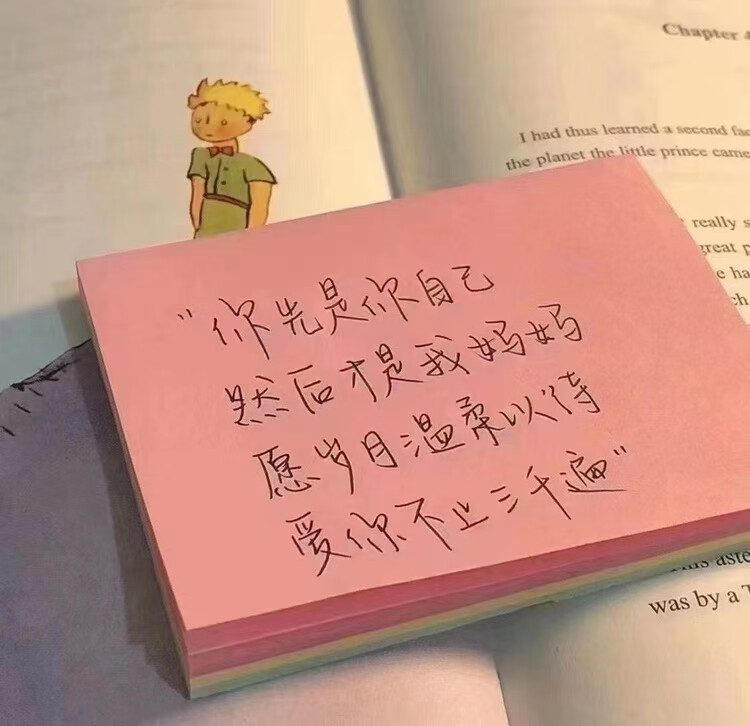 Chapter
I had thus learned a second
the planet the little prince came
really
great
“你先是你自己
然后才是我妈妈
愿岁月温柔以待
爱你不止三千遍”
was by a